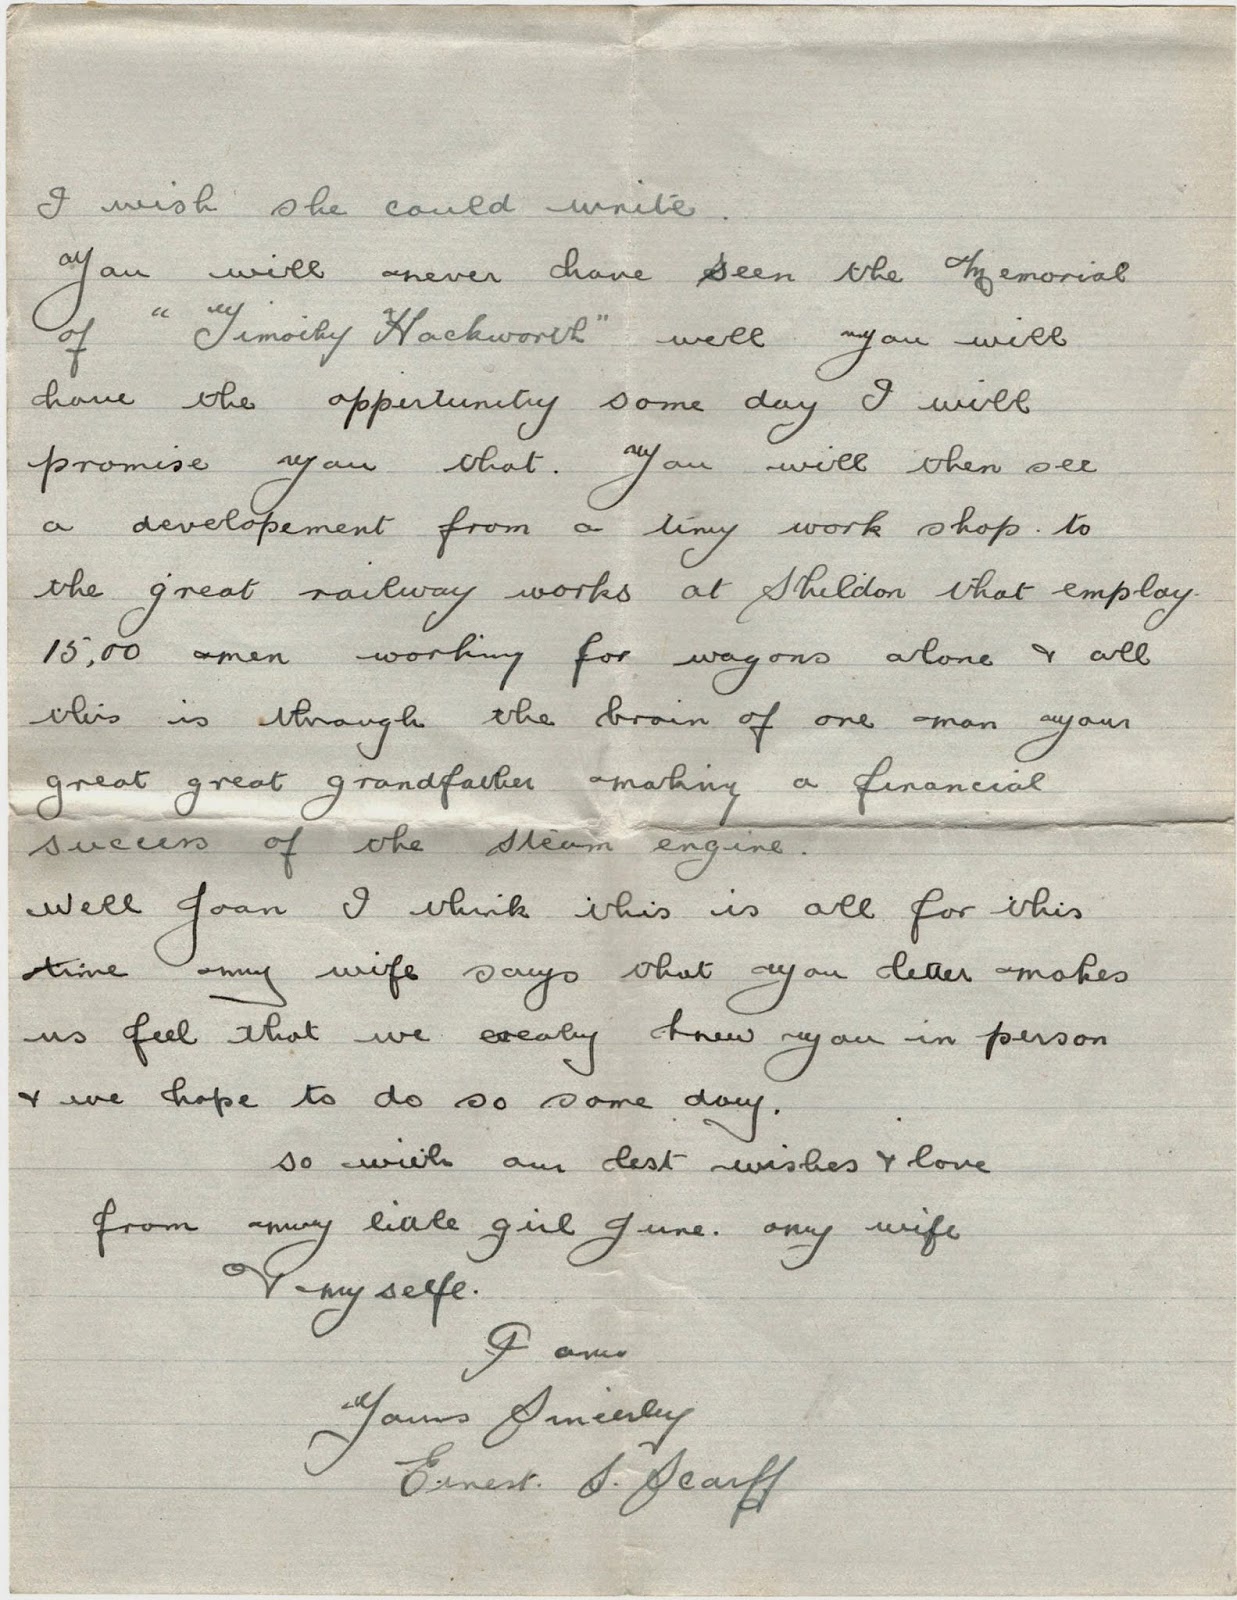 I wish she could write.
You will never have seen the Memorial
of "Timothy Hackworth" well you will
have the oppertunity some day I will
promise you that. You will then see
a developement from a tiny work shop. to
the great railway works at Shildon that employ
15,00 men working for wagons alone & all
this is through the brain of one man your
great great grandfather making a financial
success of the steam engine.
Well Joan I think this is all for this
time my wife says that you letter makes
us feel that we knew you in person
& we hope to do so some day.
so with our best wishes & love
from my little girl June. my wife
& my selfe.
I am
Yours Sincerly
Ernest. S. Scarff